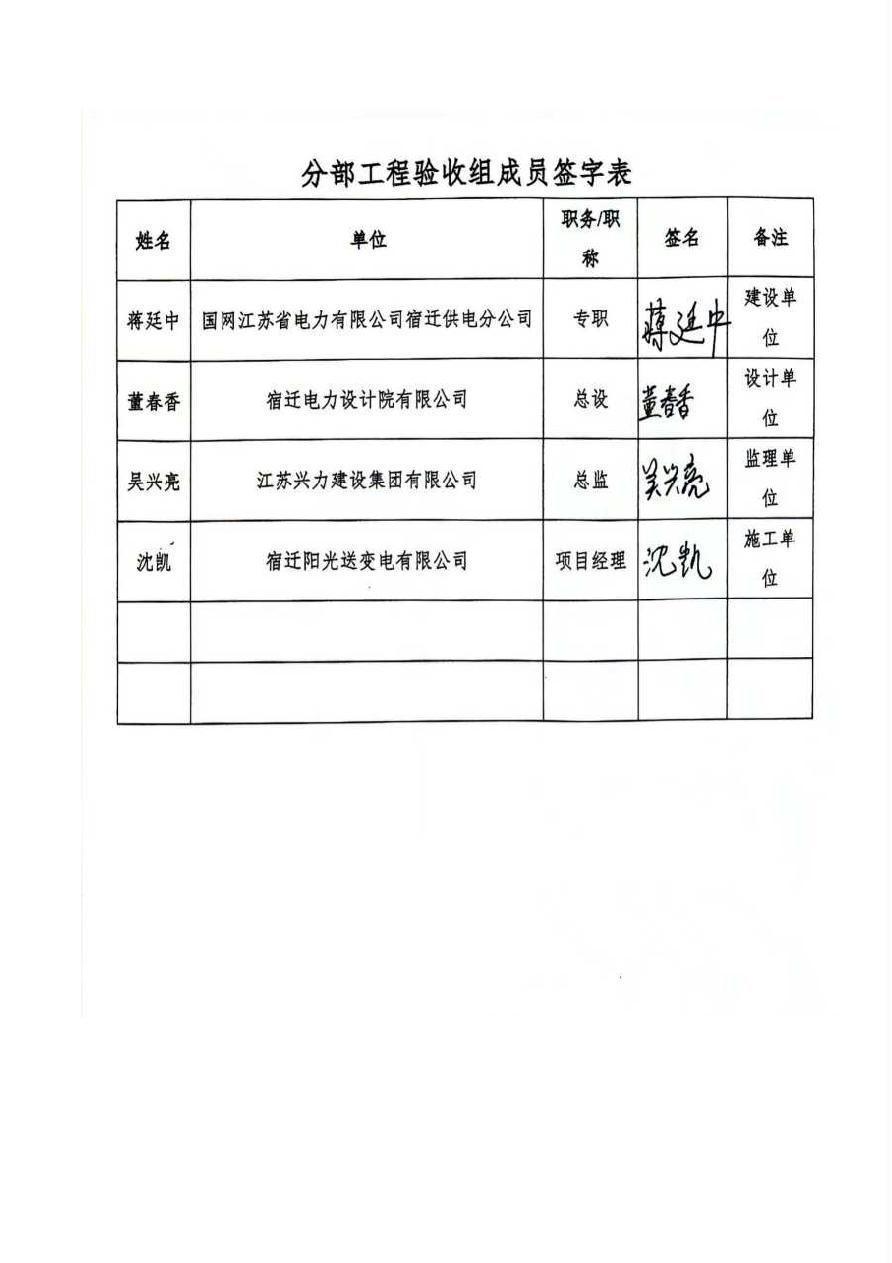 分部工程验收组成员签字表
姓名 单位 职务/职称 签名 备注
蒋廷中 国网江苏省电力有限公司宿迁供电分公司 专职 蒋廷中 建设单位
董春香 宿迁电力设计院有限公司 总设 董春香 设计单位
吴兴亮 江苏兴力建设集团有限公司 总监 吴兴亮 监理单位
沈凯 宿迁阳光送变电有限公司 项目经理 沈凯 施工单位